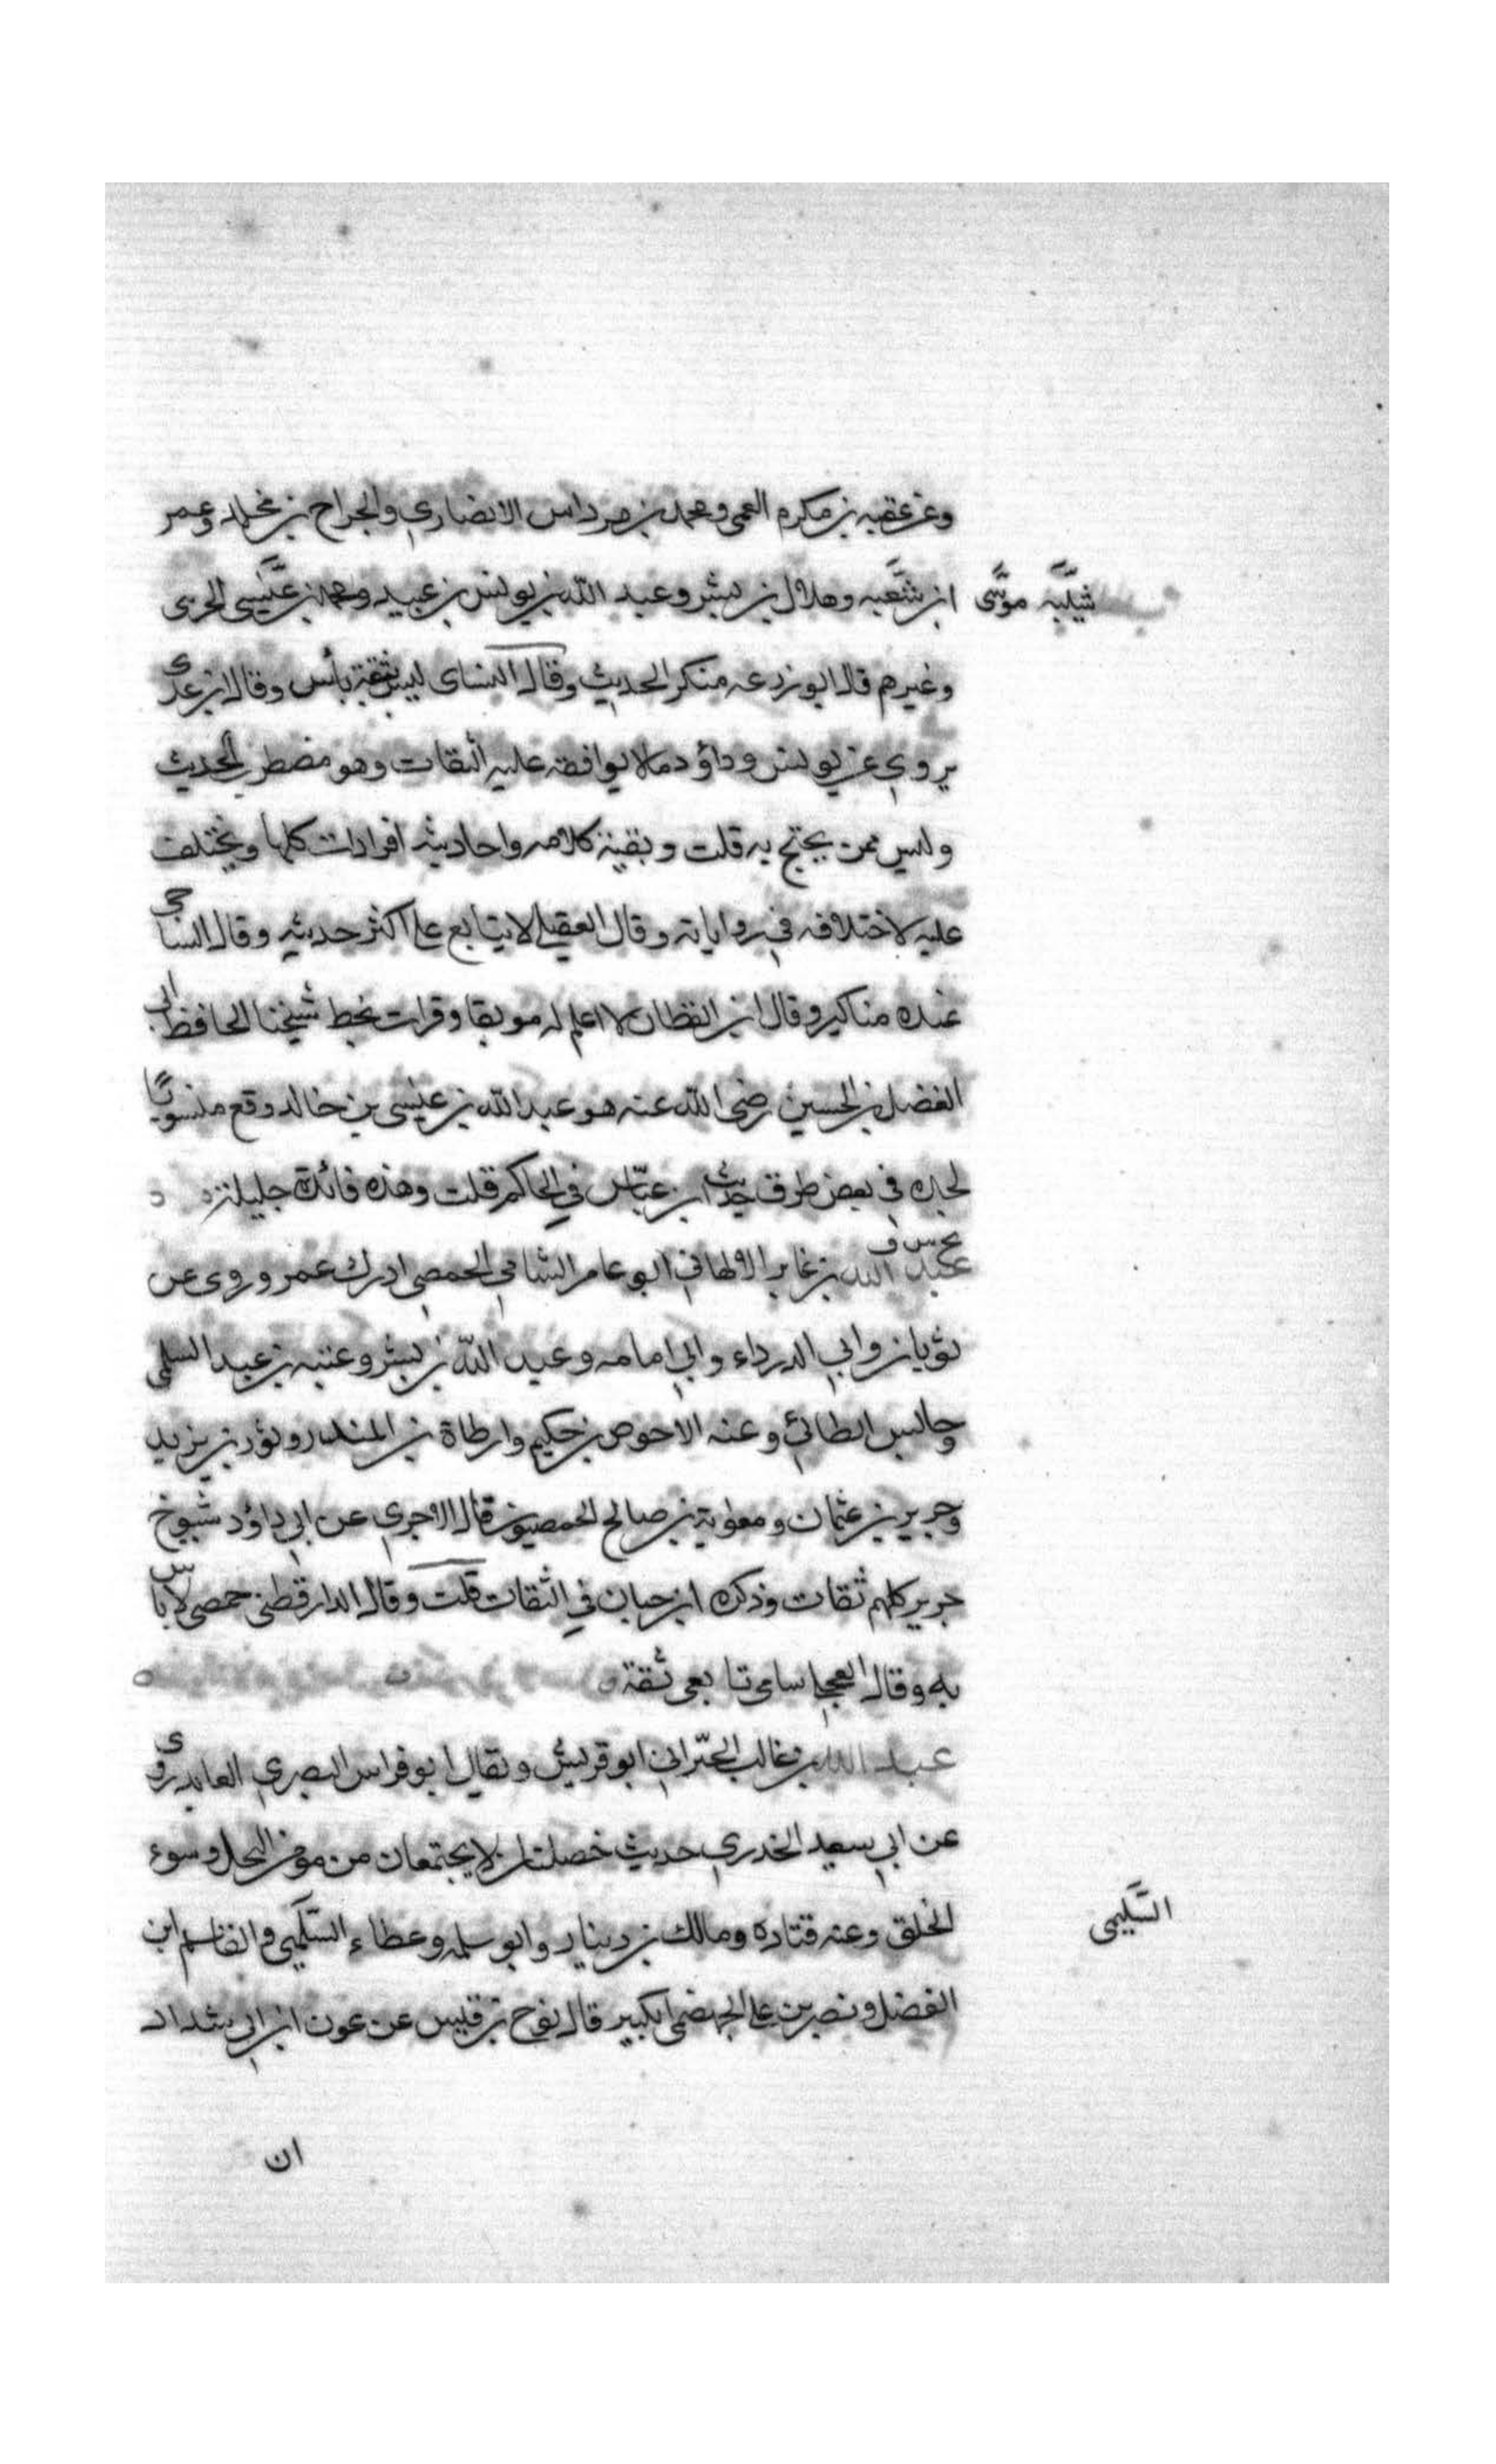 وعن عقبه بن مكرم العمى ومحمد بن مرداس الانصاري والجراح بن مخلد وعمر
ابن شعبه وهلال بن بشر وعبد الله بن يونس بن عبيد ومحمد بن عيسى الحرى
شيبه موسى
وغيرهم قال ابو زرعه منكر الحديث وقال النساى ليس بثقة بأس وقال ابن عدى
يروي عن يونس وداؤد مالا يوافقه عليه الثقات وهو مضطرب الحديث
وليس ممن يحتج به قلت وبقية كلامه واحاديثه افرادات كلها ويختلف
عليه لاختلافه في رواياته وقال العقيلي لا يتابع على اكثر حديثه وقال الساجى
عنده مناكير وقال ابن القطان لا اعلم له موثقا وقرات بخط شيخنا الحافظ ابى
الفضل بن الحسين رضى الله عنه هو عبد الله بن عيسى بن خالد وقع منسوبًا
لجده فى بعض طرق حديث ابن عباس في الحاكم قلت وهذه فائدة جليلة
بخ س ق
عبد الله بن غابر الالهاني ابو عامر الشامي الحمصي ادرك عمر وروى عن
ثوبان وابي الدرداء وابي امامه وعبد الله بن بشر وعتبه بن عبد السلمى
وحابس الطائي وعنه الاحوص بن حكيم وارطاة بن المنذر وثور بن يزيد
وجرير بن عثمان ومعوية بن صالح الحمصيون قال الاجري عن ابي داؤد شيوخ
جرير كلهم ثقات وذكره ابن حبان في الثقات قلت وقال الدارقطنى حمصى لا باس
به وقال العجلي سامى تابعى ثقة
عبد الله بن غالب الحدّاني ابو قريش ويقال ابو فراس البصري العابد روى
عن ابي سعيد الخدري حديث خصلتان لا يجتمعان من مومن البخل وسوء
الخلق وعنه قتاده ومالك بن دينار وابو سلمه وعطاء السَّلَمي والقاسم ابن
السَّليمى
الفضل ونصر بن على الجهضمى الكبير قال نوح بن قيس عن عون ابن ابي شداد
ان